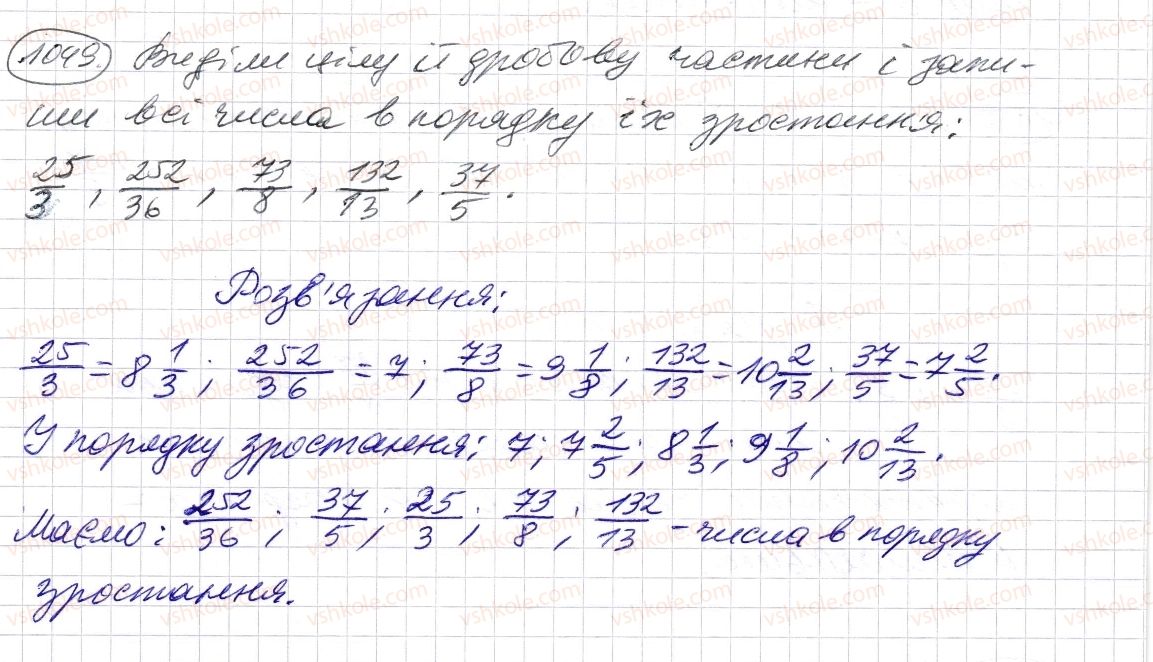 1049. Виділи цілу й дробову частини і запи-
ши всі числа в порядку їх зростання:
25/3, 252/36, 73/8, 132/13, 37/5.
Розв'язання:
25/3 = 8 1/3; 252/36 = 7; 73/8 = 9 1/8; 132/13 = 10 2/13; 37/5 = 7 2/5.
У порядку зростання: 7; 7 2/5; 8 1/3; 9 1/8; 10 2/13.
Маємо: 252/36; 37/5; 25/3; 73/8; 132/13 – числа в порядку
зростання.